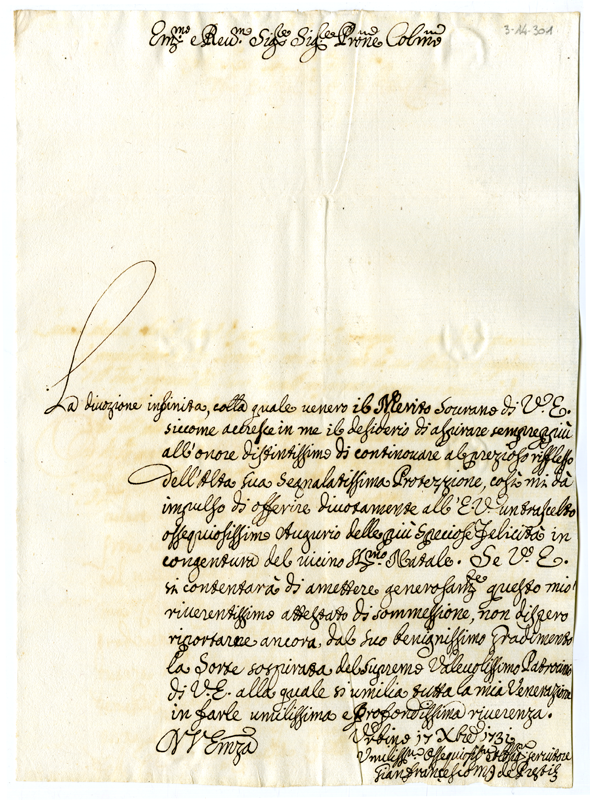 3-14-301
Em.mo e Reu.mo Sig.re Sig.re Prone Colmo
La diuozione infinita, colla quale venero il Merito Sourano di V.E.
siccome accresce in me il desiderio di aspirare sempre più
all'onore distintissimo di continouare al prezioso riflesso
dell'Alta sua segnalatissima Protezzione, così mi dà
impulso di offerire diuotamente all'E.V. un trascelto
ossequiosissimo Augurio delle più speciose Felicità in
congentura del vicino SS.mo Natale. Se V.E.
si contentarà di amettere generosam.te questo mio
riuerentissimo attestato di sommessione, non dispero
riportarne ancora dal suo benignissimo Gradimento
la Sorte sospirata del supremo Valeuolissimo Patrocinio
di V.E. alla quale si umilia tutta la mia Venerazione
in farle umilissima e profondissima riuerenza.
Di V. Emza
Vrbino 17 Xbre
Vmiliss.mo seruitore
Gianfrancesco